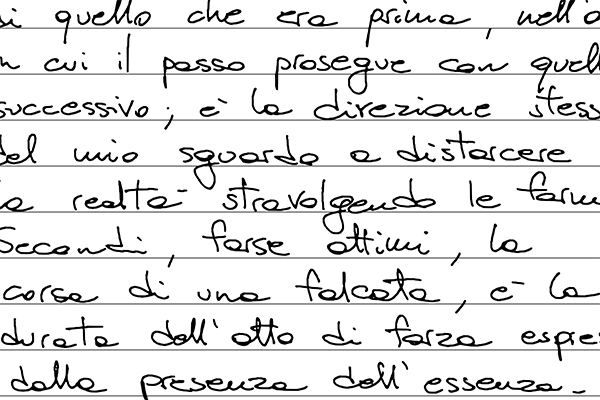 si quello che era prima, nell'a
n cui il passo prosegue con quell
successivo; è la direzione stess
del mio sguardo a distorcere
la realtà stravolgendo le form
Secondi, forse attimi, la
corsa di una falcata, è la
durata dell'atto di forza espres
dalla presenza dell'essenza.